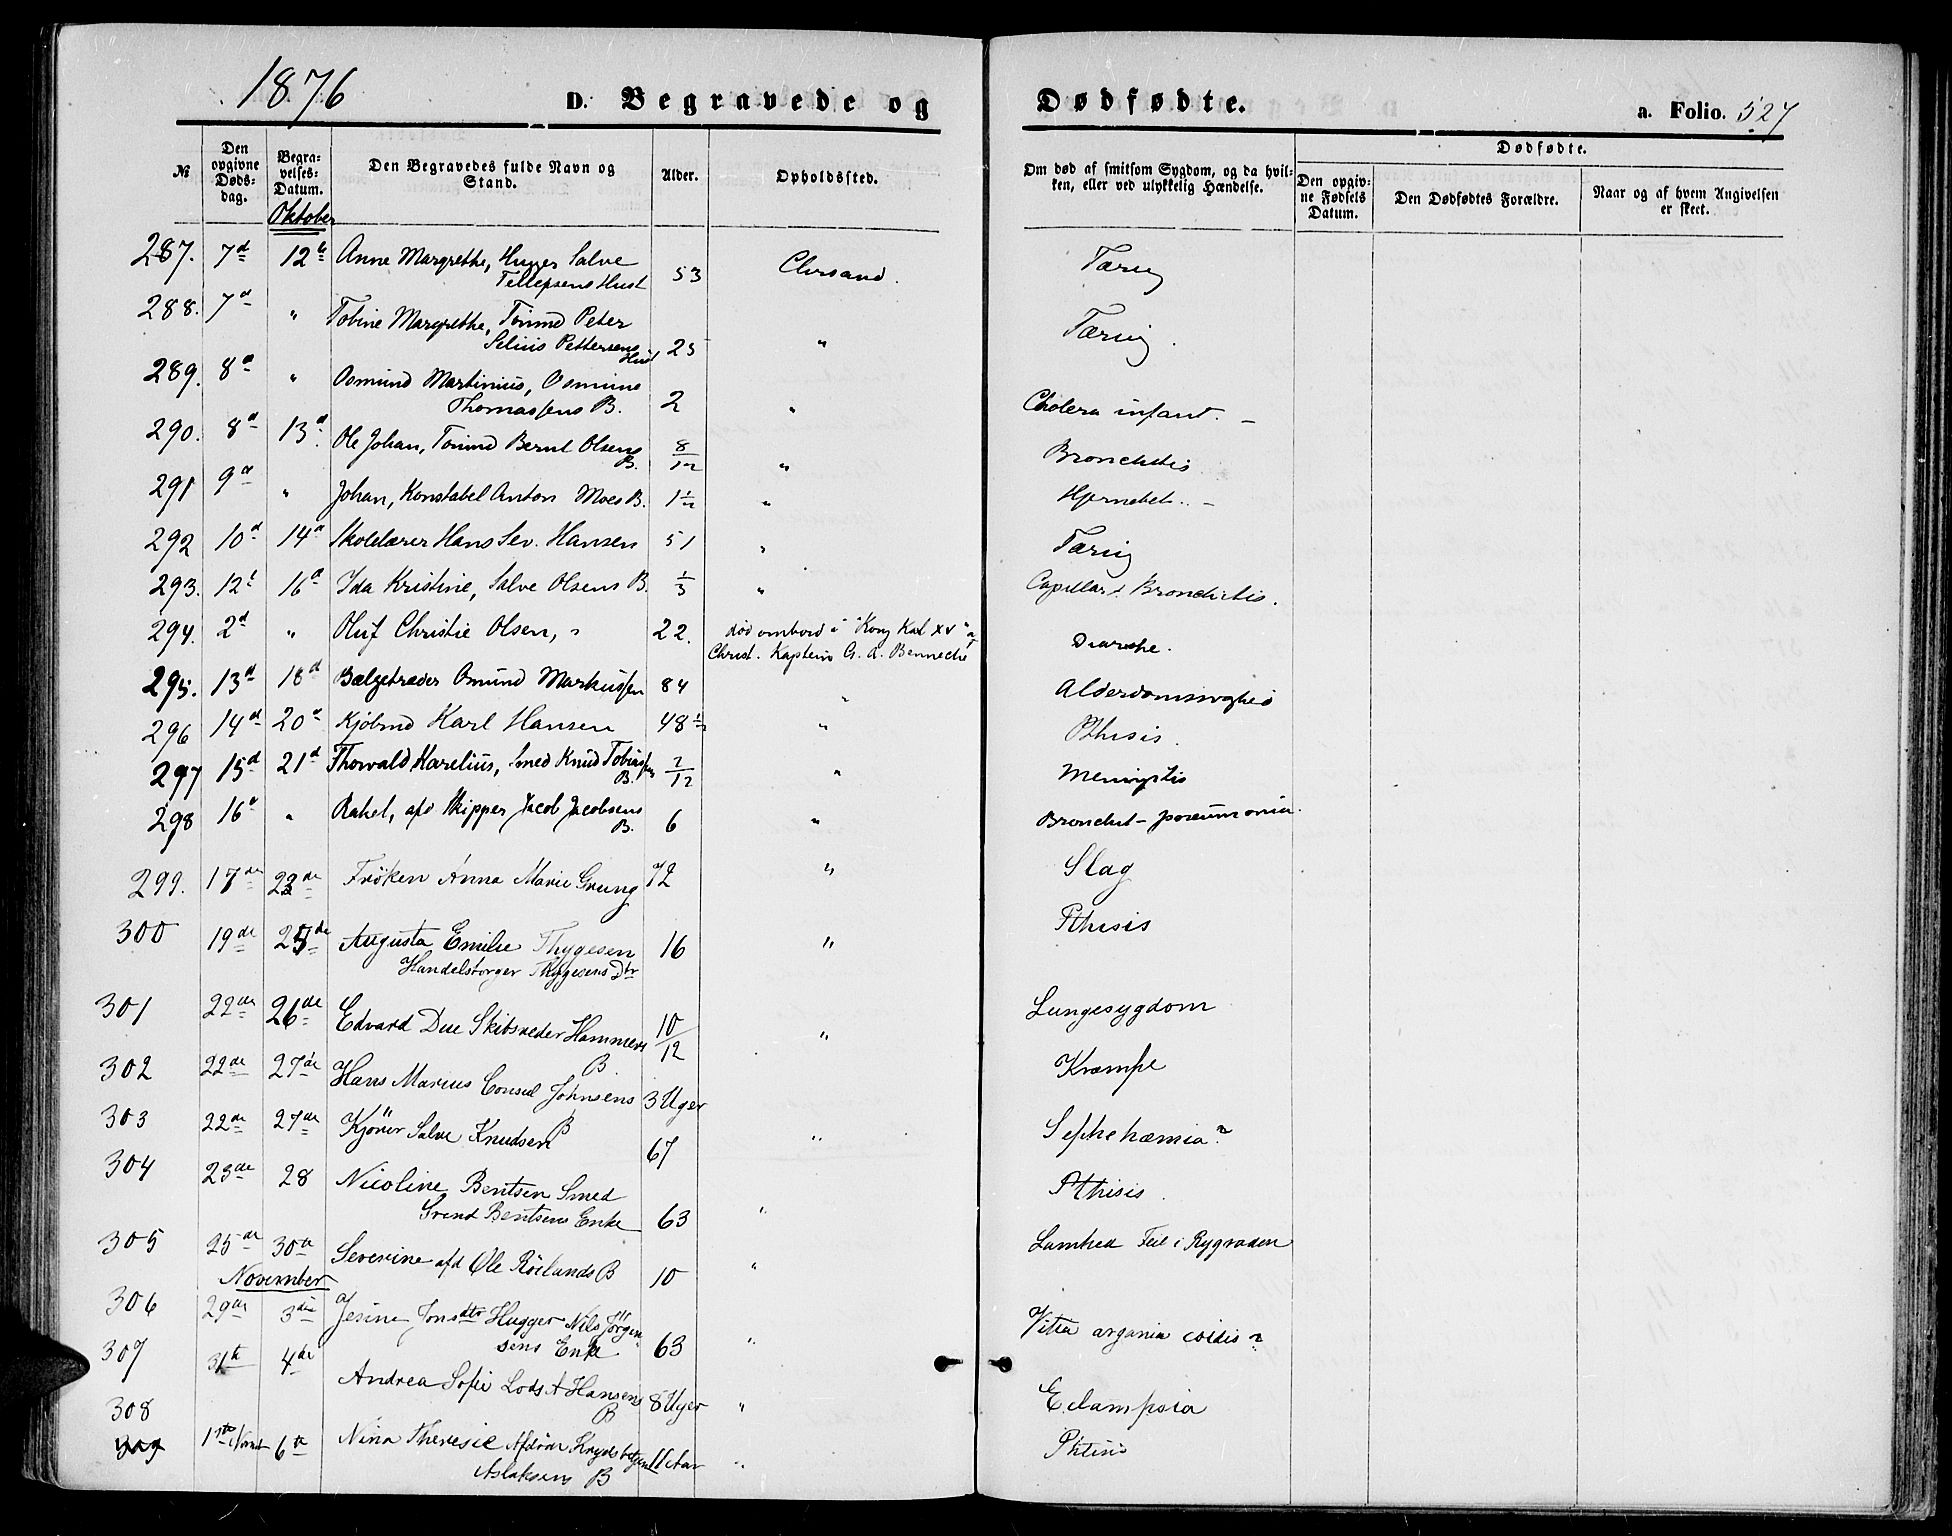 1876
D. Begravede og Dødfødte.
a. Folio. 527
№
Den opgivne Døds-dag.
Begra-velses-Datum.
Den Begravedes fulde Navn og Stand.
Alder.
Opholdssted.
Om død af smitsom Sygdom, og da hvil-ken, eller ved ulykkelig Hændelse.
Dødfødte.
Den opgiv-ne Fødsels Datum.
Den Dødfødtes Forældre.
Naar og af hvem Angivelsen er skeet.
Oktober
287. 7d 12te Anne Margrethe, Hugger Salve
Tellefsens Hust 53 Chrsand. Tæring
288. 7d " Tobine Margrethe, Tømmd Peter
Selius Pettersens Hust 25 " Tæring.
289. 8d " Osmund Martinius, Osmuns
Thomassens B. 2 " Cholera infant. -
290. 8d 13d Ole Johan, Tømmd Bernt Olsens
B. 8/12 " Bronchitis
291 9d " Johan, Konstabel Anton Moes B. 1 1/2 " Hjernebet. -
292 10d 14d Skolelærer Hans Sev. Hansen 51 " Tæring
293. 12t 16d Ida Kristine, Salve Olsens B. 1/3 " Capillar. Bronchitis.
294. 2d " Oluf Christie Olsen, " 22. død ombord i "Kong Karl XV" af
Christ. Kaptein G. A. Benneche Diarrhe.
295. 13d 18d Bælgetræder Omund Markussen 84 " Alderdomssvaghed
296 14d 20d Kjøbmd Karl Hansen 48 1/2 " Pthisis.
297 15d 21d Thorvald Karelius, Smed Knud Tobiassen
B. 2/12 " Meningitis
298 16d " Rakel, afd Skipper Jacob Jacobsens
B. 6 " Bronchit-pneumonia.
299. 17de 23de Frøken Anna Marie Grung 72 " Slag
300 19de 25de Augusta Emilie Thygesen 16 " Pthisis
Handelsborger Thygesens Dtr
301 22de 26de Edvard Due Skibsreder Hammers
B. 10/12 " Lungesygdom
302 22de 27de Hans Marius Consul Johnsens
B 3 Uger Krampe
303 22de 27de Kjører Salve Knudsen 67 " Septhehæmia?
304 23de 28 Nicoline Bentsen Smed
Svend Bentsens Enke 63 " Pthisis.
305 25de 30te Severine afd Ole Røilands B 10 " Lamhed Feil i Rygraden
November
306 29de 3die Jesine Jonsdtr Hugger Nils Jörgen
sens Enke 63 " Vitia organia cordis?
307 31te 4de Andrea Sofie Lods A Hansens
B 8 Uger " Eclampsia
308
309 1ste Novmb 6te Nina Theresie Afdöde
Aslaksens B 11 Aar " Phtisis